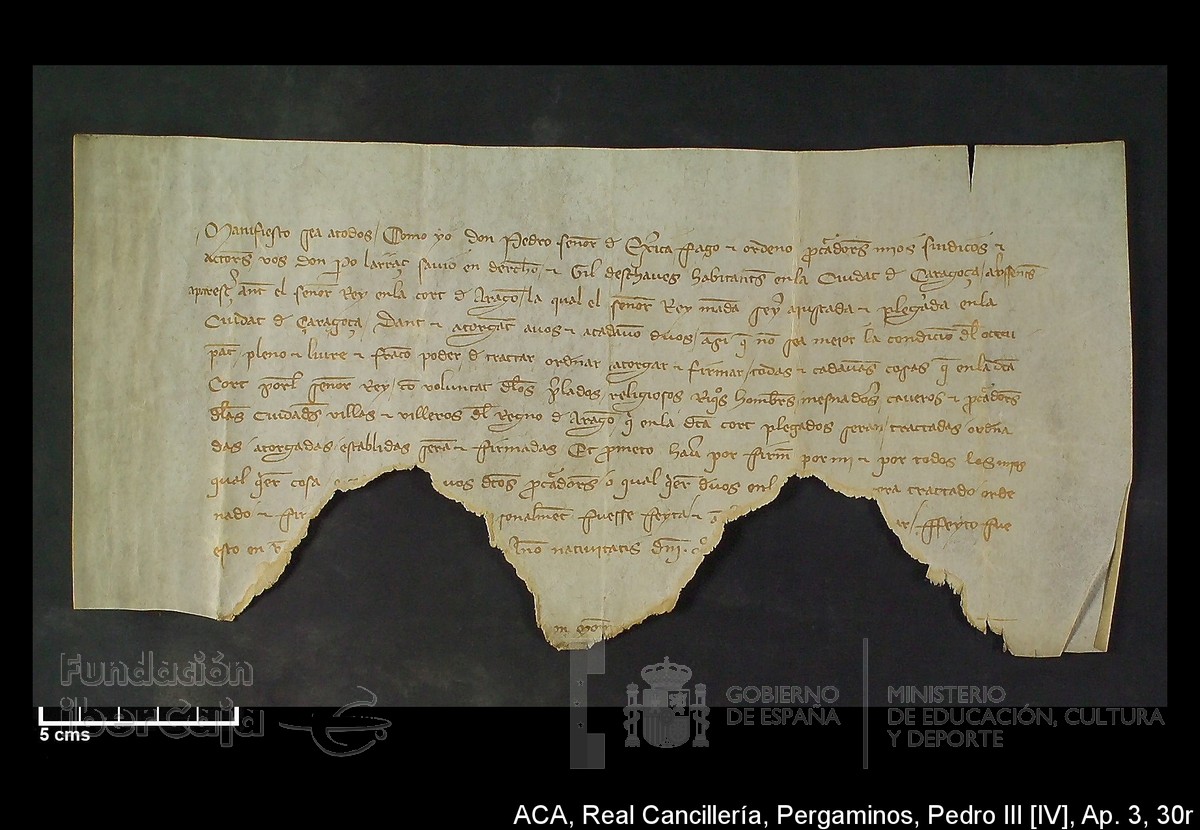 Manifiesto sea a todos Como yo don Pedro señor d Exerica fago & ordeno pcadors mios sindicos &
actors vos don Po larraç savio en dercho & Gil deschaves habitants en la Ciudat d Caragoça absents
ant el señor Rey en la cort d Aragon la qual el señor Rey manda seyer aiustada & plegada en la
Ciudat d Caragoça Dant & atorgat a vos & a cadauno d vos asi q no sea meior la condicio dl occu
pat pleno & liure & franco poder d tractar ordnar atorgar & firmar todas & cadaunas cosas q en la dta
Cort por el señor Rey co voluntat dlos plados religiosos Riqos hombres mesnaderos caueros & pcadors
dlas Ciudads villas & villeros dl Regno d Aragon q en la dta cort plegados seran tractadas ordna
das atorgadas establidas sera & firmadas Et pmeto hauer por firme por mi & por todos los mios
qual qer cosa vos dtos pcadors o qual qer d vos en l era tractado orde
nado & fir sonalment fuesse feyta & ar ffeyto fue
esto en nativitatis dni
Fundación
iberCaja
5 cms
GOBIERNO
DE ESPAÑA
MINISTERIO
DE EDUCACIÓN, CULTURA
Y DEPORTE
ACA, Real Cancillería, Pergaminos, Pedro III [IV], Ap. 3, 30r